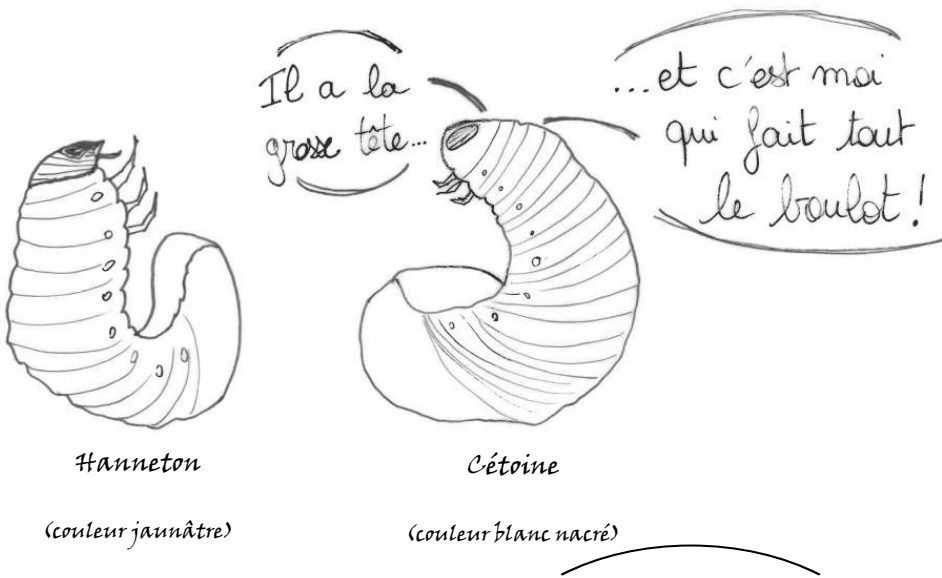 Il a la
grosse tête...
...et c'est moi
qui fait tout
le boulot !
Hanneton
Cétoine
(couleur jaunâtre)
(couleur blanc nacré)